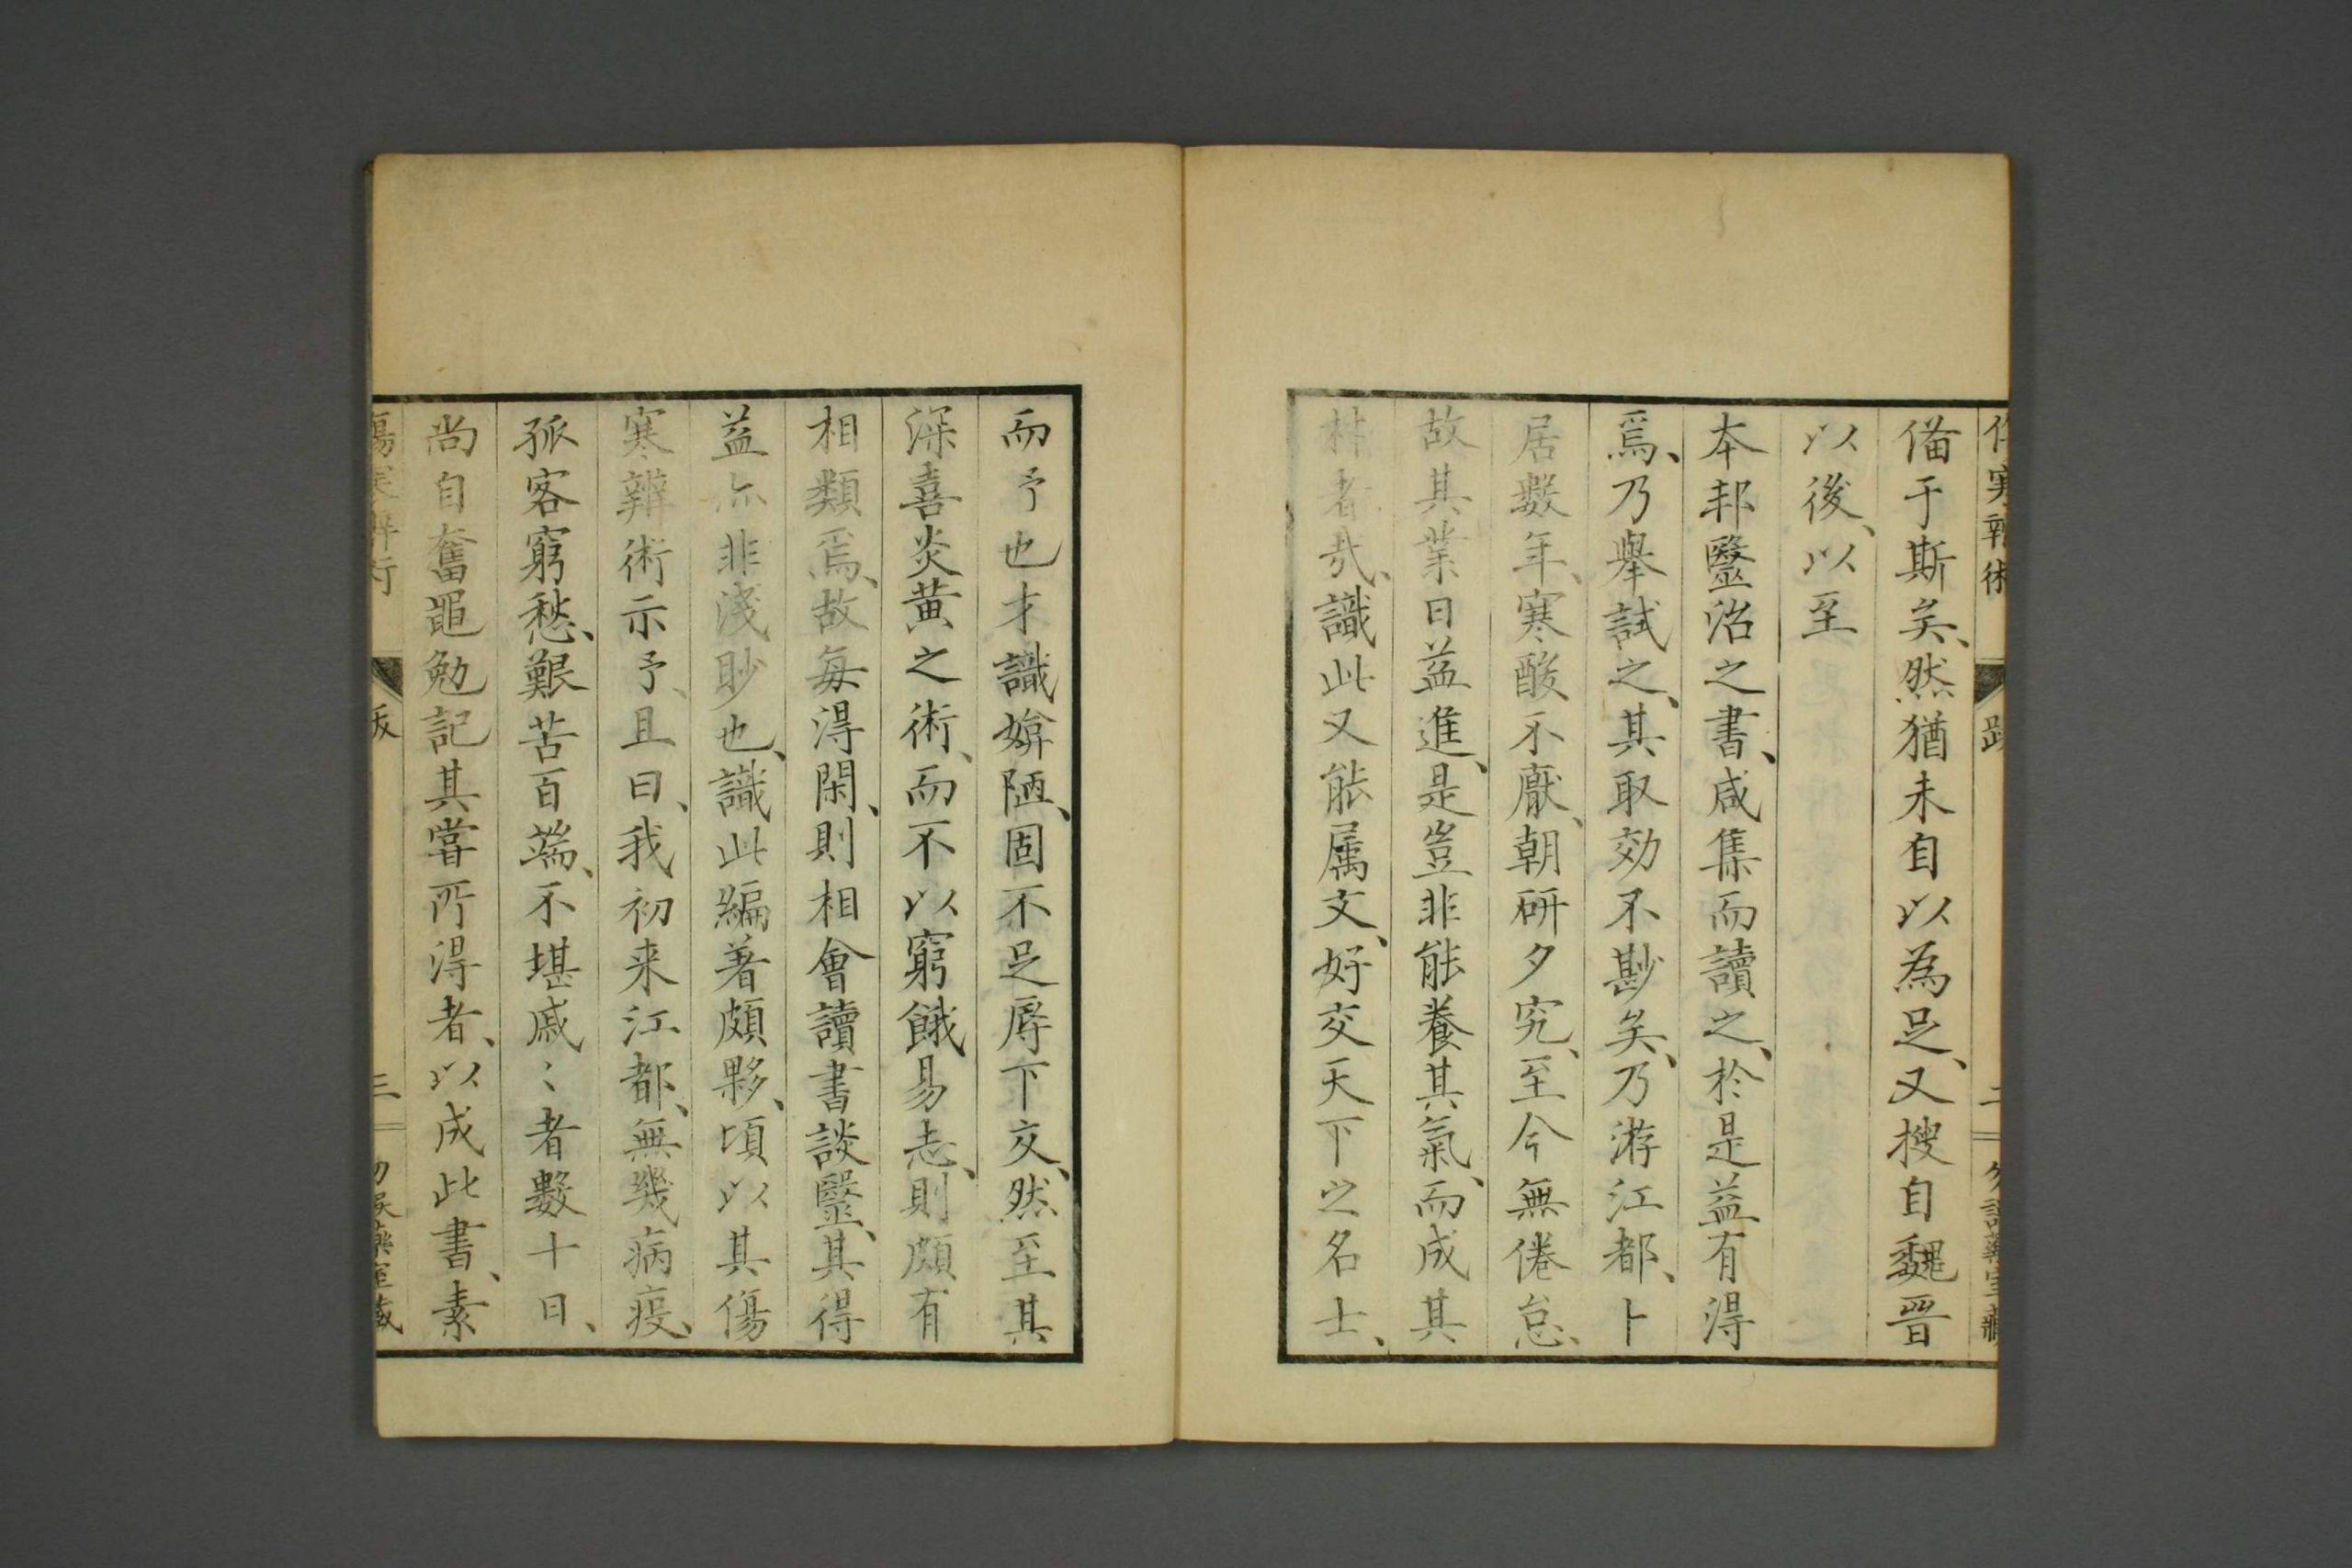 備于斯矣、然猶未自以為足、又搜自魏晉
以後、以至
本邦毉治之書、咸集而讀之、於是益有得
焉、乃舉試之、其取効不尠矣、乃游江都、卜
居數年、寒酸不厭、朝研夕究、至今無倦怠、
故其業日益進、是豈非能養其氣、而成其
材者哉、識此又能属文、好交天下之名士、
而予也才識媕陋、固不足辱下交、然至其
深喜炎黄之術、而不以窮餓易志、則頗有
相類焉、故每得閑、則相會讀書談毉、其得
益亦非淺眇也、識此編著頗夥、頃以其傷
寒辨術示予、且曰、我初来江都、無幾病疫、
孤客窮愁、艱苦百端、不堪戚〻者數十日、
尚自奮黽勉記其嘗所得者、以成此書、素